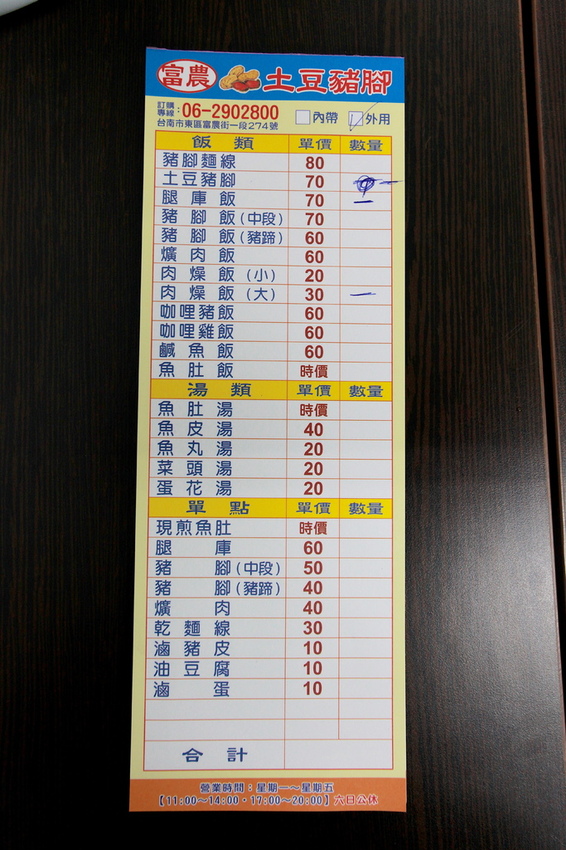 富農 土豆豬腳
訂購專線：06-2902800 內帶 外用
台南市東區富農街一段274號
飯類 單價 數量
豬腳麵線 80
土豆豬腳 70
腿庫飯 70 一
豬腳飯(中段) 70
豬腳飯(豬蹄) 60
爌肉飯 60
肉燥飯(小) 20
肉燥飯(大) 30 一
咖哩豬飯 60
咖哩雞飯 60
鹹魚飯 60
魚肚飯 時價
湯類 單價 數量
魚肚湯 時價
魚皮湯 40
魚丸湯 20
菜頭湯 20
蛋花湯 20
單點 單價 數量
現煎魚肚 時價
腿庫 60
豬腳(中段) 50
豬腳(豬蹄) 40
爌肉 40
乾麵線 30
滷豬皮 10
油豆腐 10
滷蛋 10
合計
營業時間：星期一～星期五
【11:00～14:00・17:00～20:00】六日公休